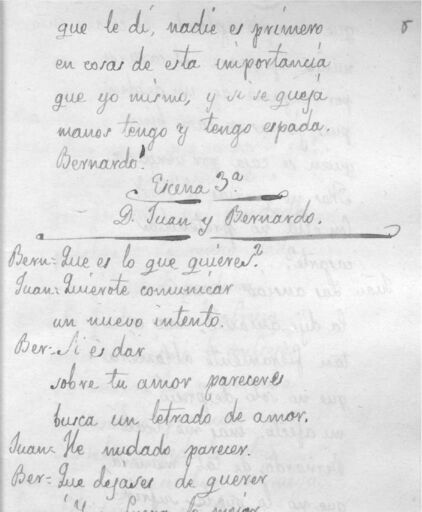 que le dí, nadie es primero
5
en cosas de esta importancia
que yo mismo, y si se queja
manos tengo y tengo espada.
Bernardo!
Escena 3ª
D. Juan y Bernardo.
Bern= Que es lo que quieres?
Juan= Quierote comunicar
un nuevo intento.
Ber- Si es dar
sobre tu amor pareceres
busca un letrado de amor.
Juan= He mudado parecer.
Ber= Que dejases de querer
lo mejor